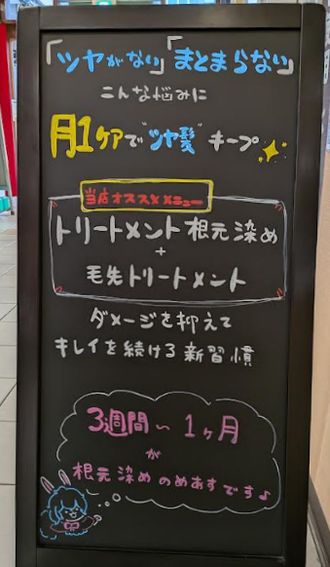 「ツヤがない」「まとまらない」
こんな悩みに
月1ケアで"ツヤ髪"キープ
当店オススメメニュー
トリートメント根元染め
+
毛先トリートメント
ダメージを抑えて
キレイを続ける新習慣
3週間~1ヶ月
が
根元染めのめあすです♪